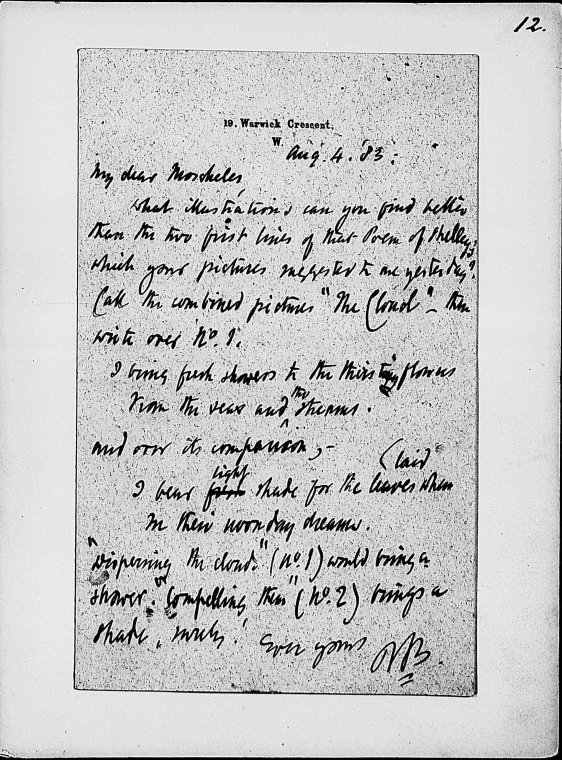 12.
19. Warwick Crescent.
W.
Aug. 4. '83:
My dear Moscheles,
what illustrations can you find better
than the two first lines of that Poem of Shelley's
which your pictures suggested to me yesterday?
Call the combined pictures "The Cloud" – then
write over No. 1.
I bring fresh showers to the thirsting flowers
From the seas and the streams.
and over its companion, –
(laid
I bear light shade for the leaves when
In their noonday dreams.
"Dispersing the clouds" (No. 1) would bring a
shower: "Compelling them" (No. 2) brings a
shade, surely!
Ever yours
RB.